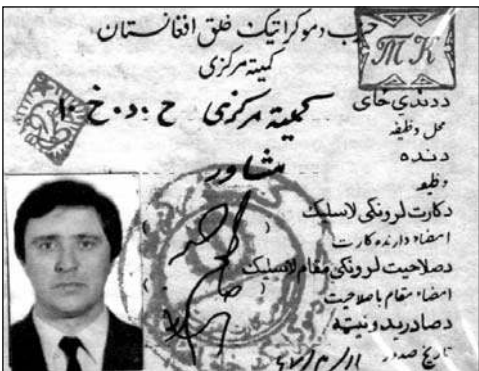 حزب دموکراتیک خلق افغانستان
کمیته مرکزی
ТК
کمیته مرکزی ح.د.خ.ا
ددندې ځای
محل وظیفه
مشاور
دنده
وظیفه
دکارت لرونکی لاسلیک
امضاء دارنده کارت
دصلاحیت لرونکی مقام لاسلیک
امضاء مقام با صلاحیت
دصادرېدو نېټه
تاریخ صدور